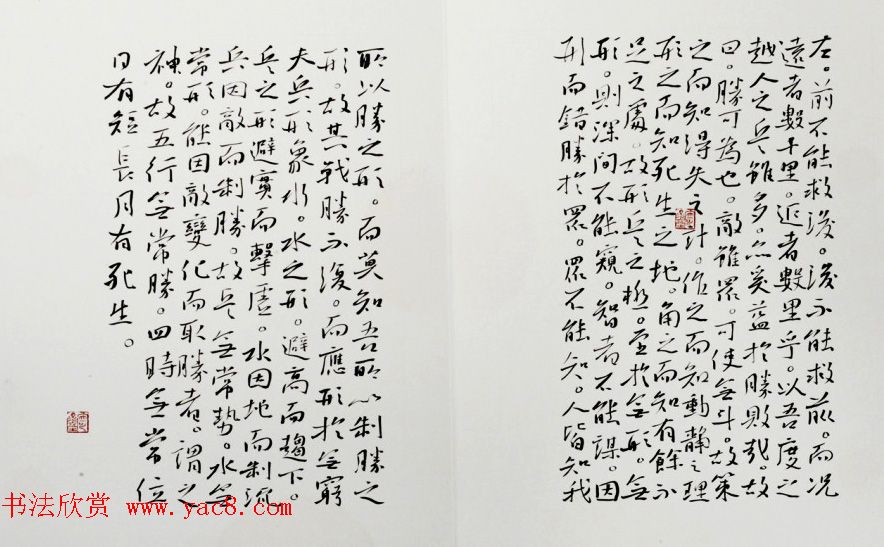 左。前不能救後。後不能救前。而況
遠者數千里。近者數里乎。以吾度之
越人之兵雖多。亦奚益於勝敗哉。故
曰。勝可為也。敵雖眾。可使無斗。故策
之而知得失之計。作之而知動靜之理
形之而知死生之地。角之而知有餘不
足之處。故形兵之極。至於無形。無
形。則深間不能窺。智者不能謀。因
形而錯勝於眾。眾不能知。人皆知我
所以勝之形。而莫知吾所以制勝之
形。故其戰勝不復。而應形於無窮
夫兵形象水。水之形。避高而趨下。
兵之形避實而擊虛。水因地而制流
兵因敵而制勝。故兵無常勢。水無
常形。能因敵變化而取勝者。謂之
神。故五行無常勝。四時無常位
日有短長月有死生。
书法欣赏 www.yac8.com